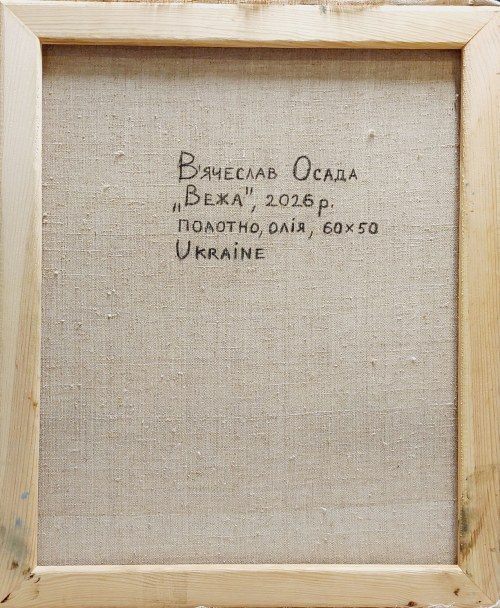 В'ячеслав Осада
„Вежа", 2026 р.
полотно, олія, 60×50
Ukraine